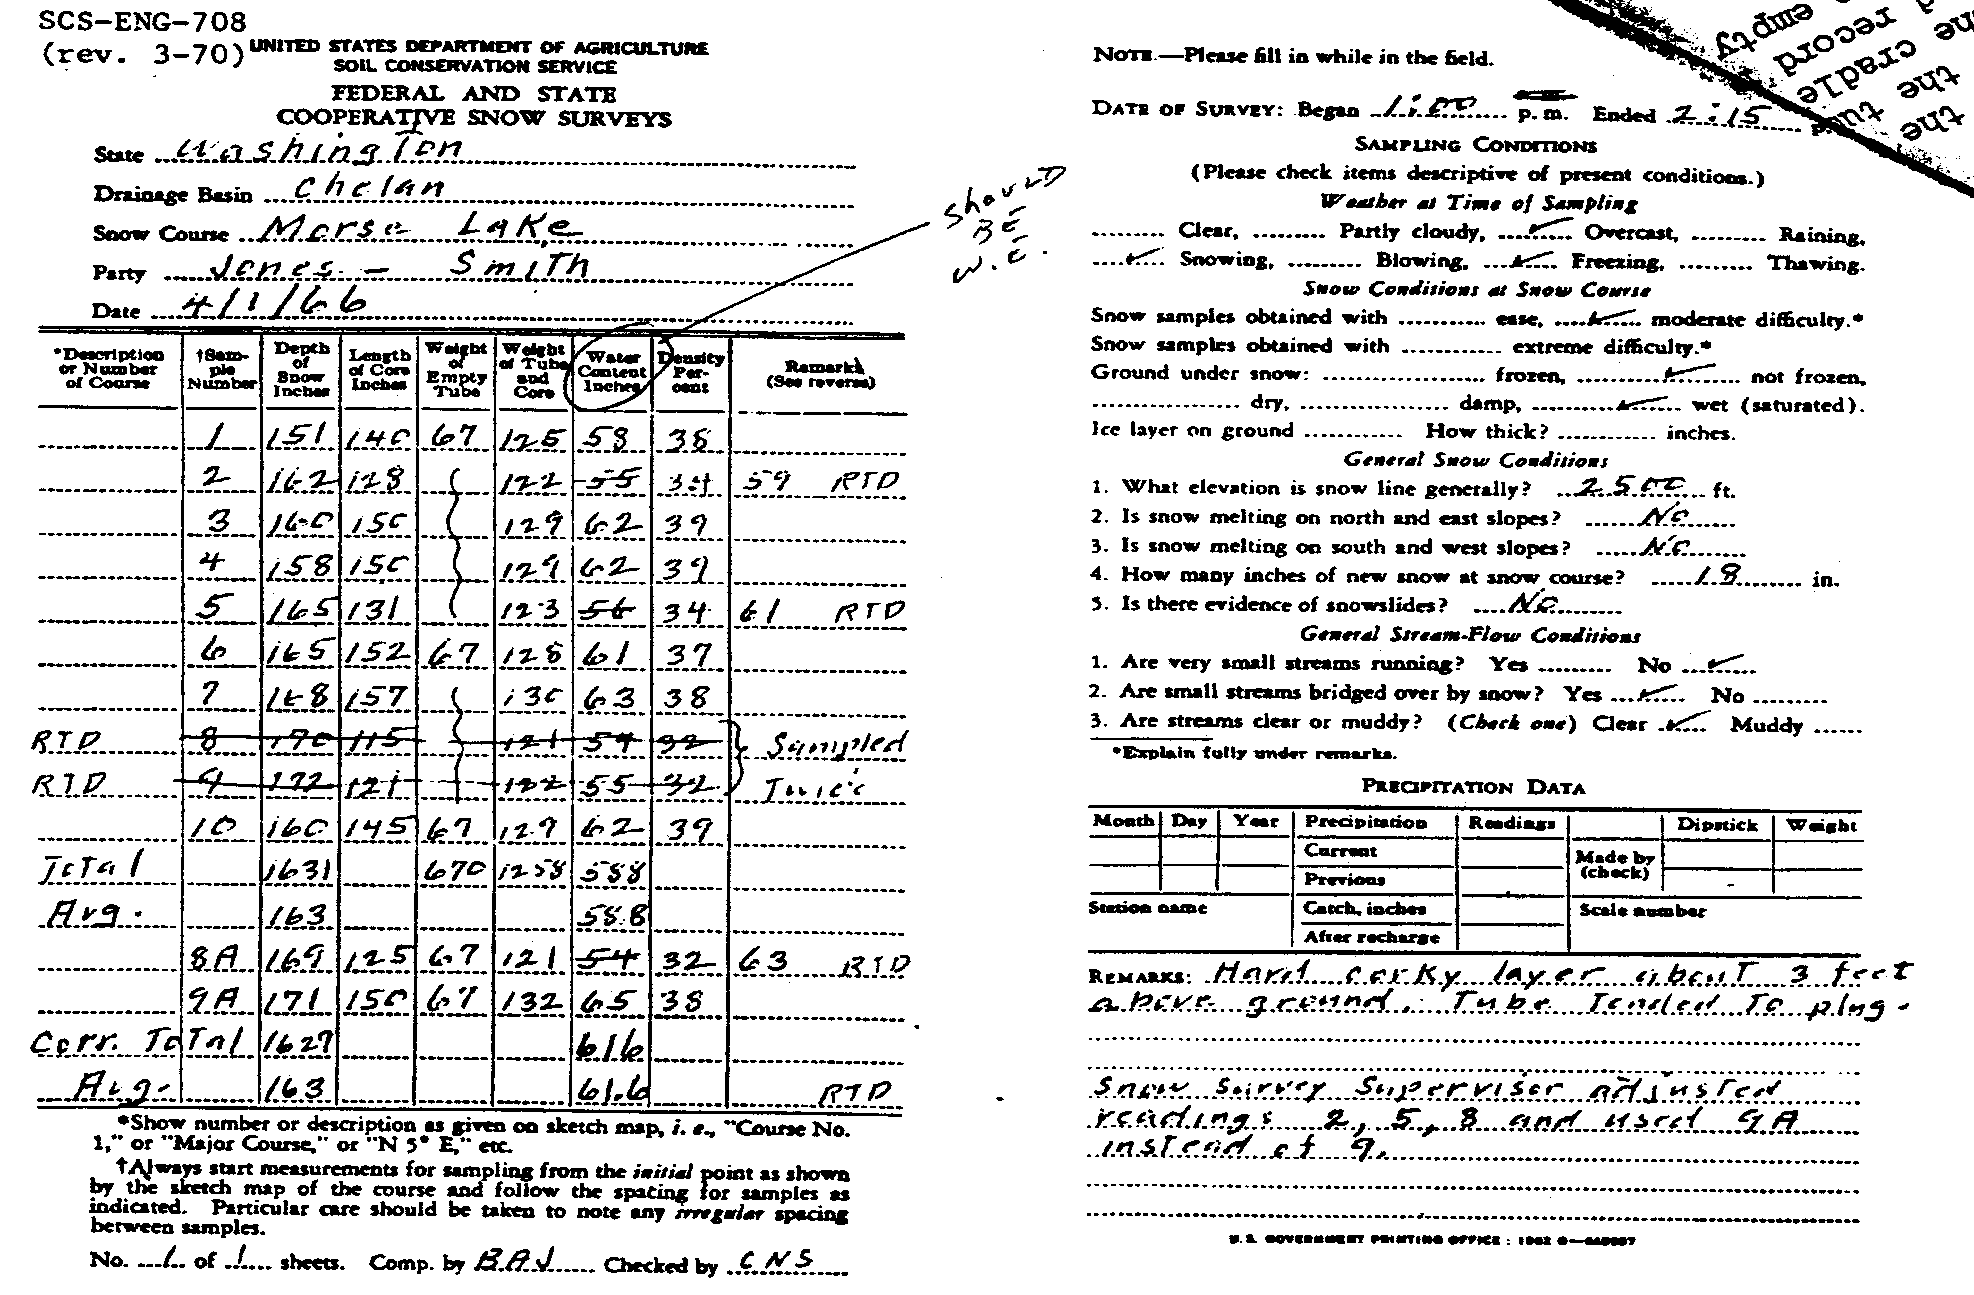 SCS-ENG-708
(rev. 3-70)
UNITED STATES DEPARTMENT OF AGRICULTURE
SOIL CONSERVATION SERVICE
FEDERAL AND STATE
COOPERATIVE SNOW SURVEYS
State Washington
Drainage Basin Chelan
Snow Course Morse Lake
Party Jones - Smith
Date 4/1/66
Should
BE
W.C.
*Description or Number of Course †Sample Number Depth of Snow Inches Length of Core Inches Weight of Empty Tube Weight of Tube and Core Water Content Inches Density Per-cent Remarks (See reverse)
1 151 140 67 125 58 38
2 162 128 122 55 34 59 RTD
3 160 150 129 62 39
4 158 150 129 62 39
5 165 131 123 56 34 61 RTD
6 165 152 67 128 61 37
7 168 157 130 63 38
RTD 8 170 115 121 54 32 Sampled
RTD 9 172 121 122 55 32 Twice
10 160 145 67 129 62 39
Total 1631 670 1258 588
Avg. 163 58.8
8A 169 125 67 121 54 32 63 RTD
9A 171 150 67 132 65 38
Corr. Total 1629 616
Avg. 163 61.6 RTD
*Show number or description as given on sketch map, i. e., "Course No.
1," or "Major Course," or "N 5° E," etc.
†Always start measurements for sampling from the initial point as shown
by the sketch map of the course and follow the spacing for samples as
indicated. Particular care should be taken to note any irregular spacing
between samples.
No. 1 of 1 sheets. Comp. by BAJ Checked by CNS
NOTE.—Please fill in while in the field.
DATE OF SURVEY: Began 1:00 p. m. Ended 2:15
SAMPLING CONDITIONS
(Please check items descriptive of present conditions.)
Weather at Time of Sampling
Clear, Partly cloudy, ✓ Overcast, Raining,
✓ Snowing, Blowing, ✓ Freezing, Thawing.
Snow Conditions at Snow Course
Snow samples obtained with ease, ✓ moderate difficulty.*
Snow samples obtained with extreme difficulty.*
Ground under snow: frozen, ✓ not frozen,
dry, damp, ✓ wet (saturated).
Ice layer on ground How thick? inches.
General Snow Conditions
1. What elevation is snow line generally? 2500 ft.
2. Is snow melting on north and east slopes? No
3. Is snow melting on south and west slopes? No
4. How many inches of new snow at snow course? 18 in.
5. Is there evidence of snowslides? No
General Stream-Flow Conditions
1. Are very small streams running? Yes No ✓
2. Are small streams bridged over by snow? Yes ✓ No
3. Are streams clear or muddy? (Check one) Clear ✓ Muddy
*Explain fully under remarks.
PRECIPITATION DATA
Month Day Year Precipitation Readings Dipstick Weight
Current
Made by (check)
Previous
Station name Catch, inches Scale number
After recharge
REMARKS: Hard corky layer about 3 feet
above ground. Tube Tended To plug.
Snow Survey Supervisor adjusted
readings 2, 5, 8 and used 9A
instead of 9.
U. S. GOVERNMENT PRINTING OFFICE : 1962
the
the tu
cradle
record
empty